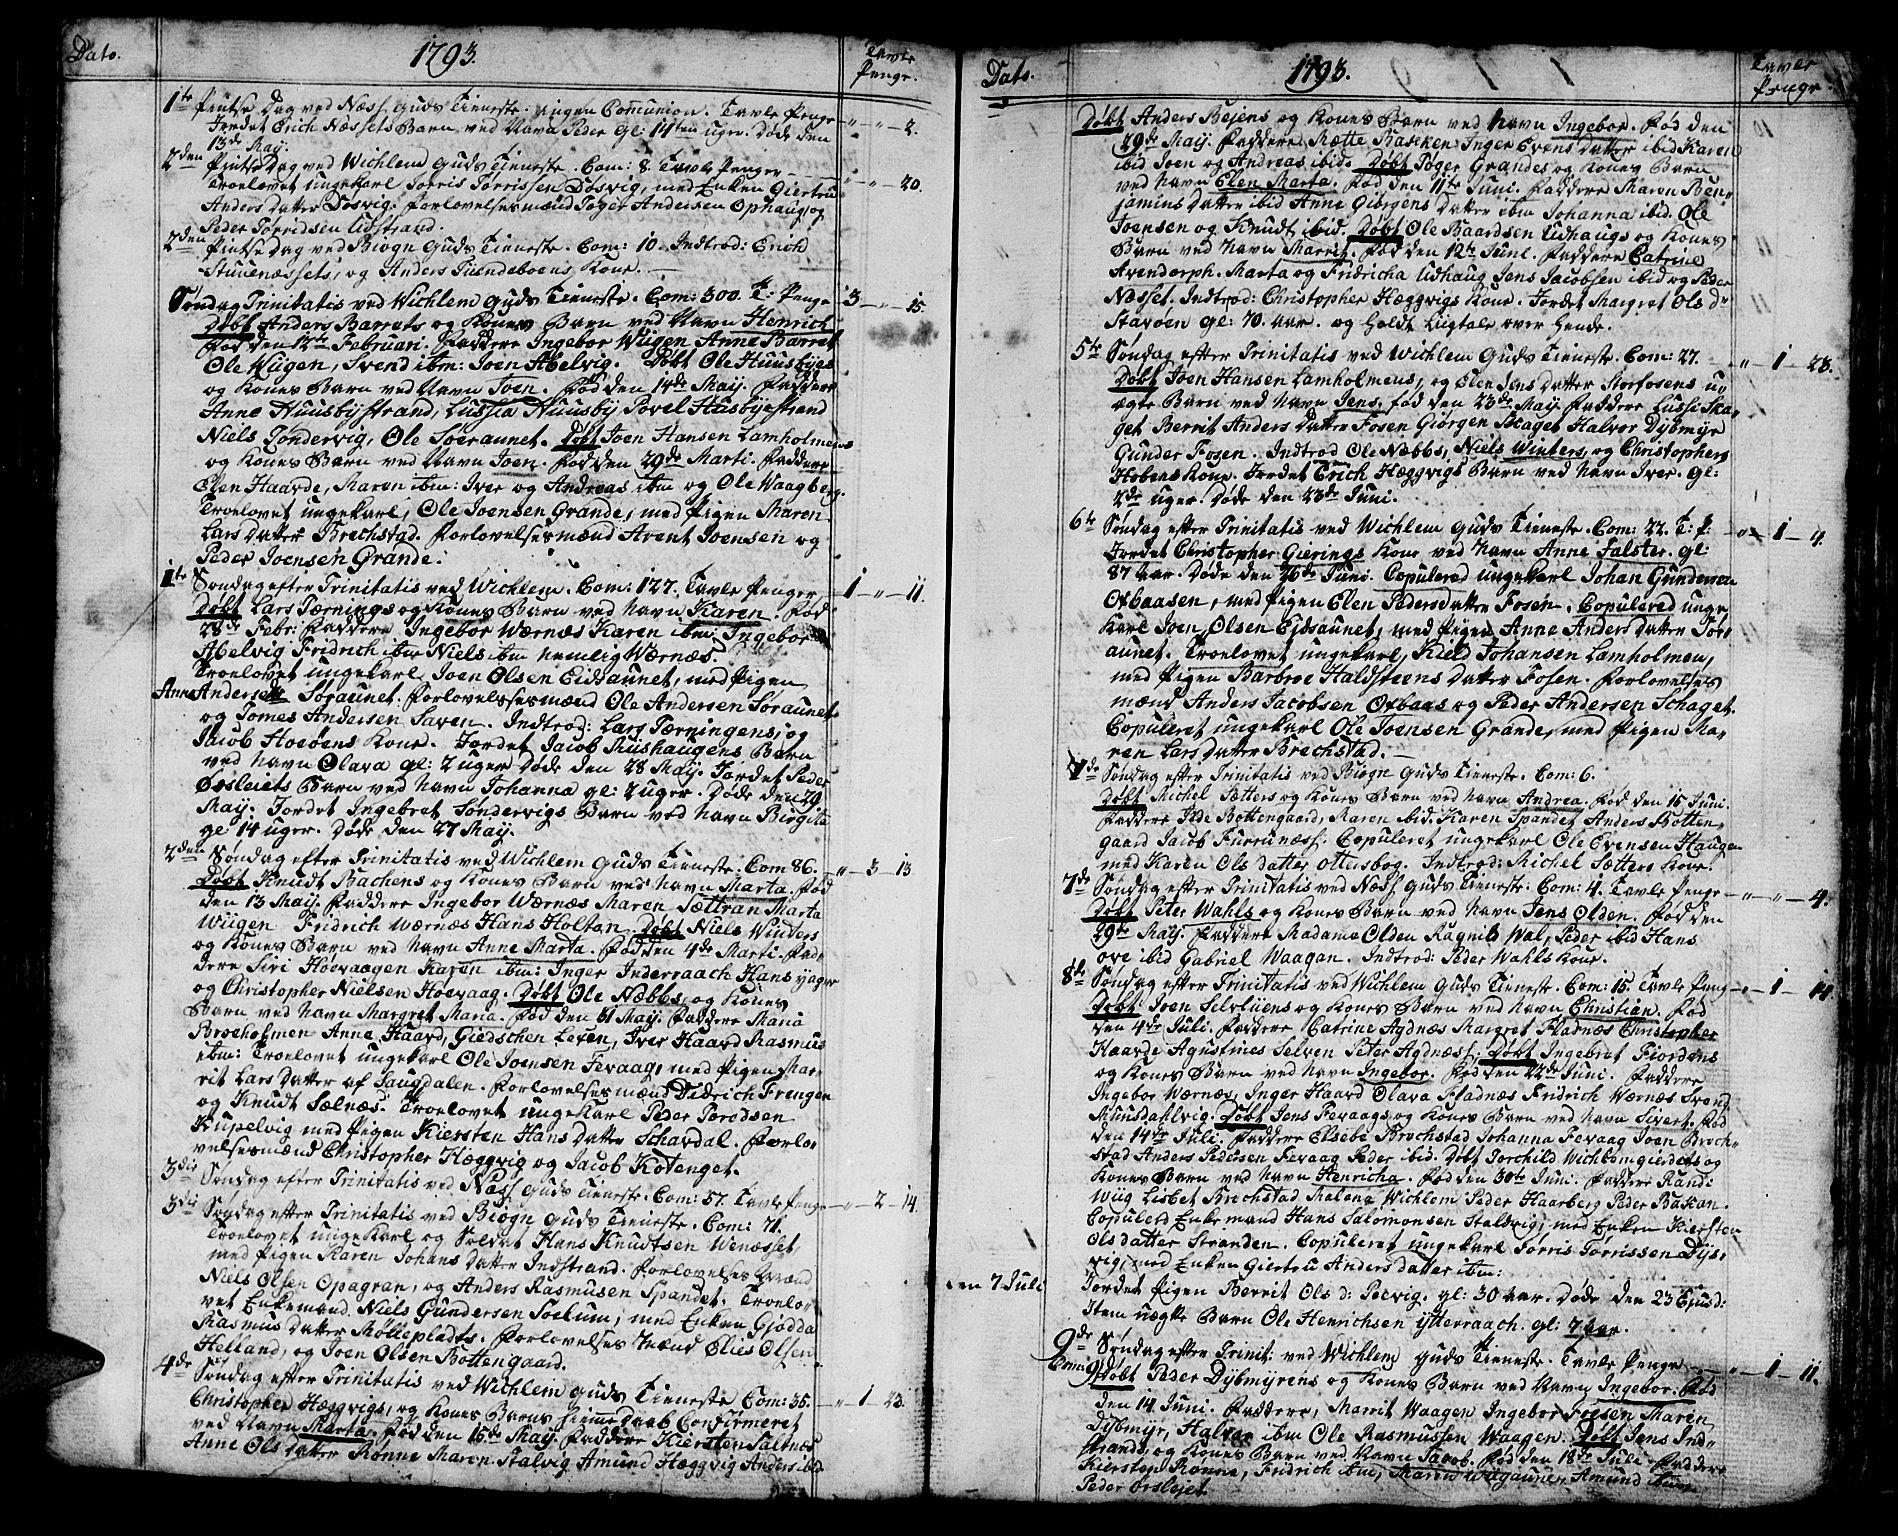 Dato. 1793. Tavle Penge.
1te Pintse Dag ved Næss. Guds Tieneste: ingen Comunion. Tavle Penge — " — " — 2.
Jordet Erich Næssets Barn ved Navn Peder gl: 14ten uger. Døde den
13de May.
2den Pintse Dag ved Wichlem Guds Tieneste. Com: 8. Tavle Penge — " — " — 20.
Troelovet ungekarl Jørris Tørrissen Døsvig, med Enken Giertru
Anders datter Døsvig. Forlovelsesmænd Toger Andersen Ophaug, og
Peder Torridsen Udstrand.
2den Pintse Dag ved Biøgn Guds Tieneste. Com: 10. Indtrod: Erich
Stuenæssets, og Anders Tuendeboens Kone.
Søndag Trinitatis ved Wichlem Guds Tieneste. Com: 300. T: Penge 3 — " — 15.
Døbt Anders Barrets og Kones Barn ved Navn Henrich
Fød den 12te Februari. Faddere Ingebor Wiigen Anne Barret
Ole Wiigen, Svend ibm: Joen Abelvig. Døbt Ole Huusbyes
og Kones Barn ved Navn Joen. Fød den 14de May. Faddere
Anne Huusbystrand, Lussia Huusby Povel Husbyestrand
Niels Tøndervig, Ole Soeraunet. Døbt Joen Hansen Lamholmens
og Kones Barn ved Navn Joen. Fød den 29de Marti. Faddere
Elen Haarde, Maren ibm: Iver og Andreas ibm og Ole Waagberg.
Troelovet ungekarl, Ole Joensen Grande, med Pigen Maren
Lars datter Brechstad. Forlovelsesmænd Arent Joensen og
Peder Joensen Grande.
1te Søndag efter Trinitatis ved Wichlem. Com: 127. Tavle Penge 1 — " — 11.
Døbt Lars Tærnings og Kones Barn ved Navn Karen. Fød
28de Febr: Faddere Ingebor Wærnæs Karen ibm: Ingebor
Abelvig Fridrich ibm Niels ibm nemlig Wærnæs.
Troelovet ungekarl Joen Olsen Eidsaunet, med Pigen
Anne Andersdr Søraunet. Forlovelsesmænd Ole Andersen Søraunet
og Tomes Andersen Saven. Indtrod: Lars Tærningens, og
Jacob Hoeøens Kone. Jordet Jacob Rushaugens Barn
ved Navn Olava gl: 2 uger Døde den 28 May. Jordet Peder
Øesleiets Barn ved Navn Johanna gl: 2 uger. Døde den 29
May. Jordet Ingebret Søndervigs Barn ved Navn Birgita
gl 14 uger. Døde den 27 May.
2den Søndag efter Trinitatis ved Wichlem Guds Tieneste. Com 86. " — 3 — 13
Døbt Knudt Bachens og Kones Barn ved Navn Marta. Fød
den 13 May. Faddere Ingebor Wærnæs Maren Sættran Marta
Wiigen Fridrich Wærnæs Hans Holtan. Døbt Niels Winters
og Kones Barn ved Navn Anne Marta. Fød den 4de Marti. Fad-
dere Siri Høevaagen Karen ibm: Inger Inderraach Hans yager
og Christopher Nielsen Høevaag. Døbt Ole Næbbs, og Kones
Barn ved Navn Margret Maria. Fød den 31 May. Faddere Maria
Broeholmen Anne Haard, Giedschen Lexen, Iver Haard Rasmus
ibm: Troelovet ungekarl Ole Joensen Fevaag, med Pigen Mar-
rit Lars datter af Saugdalen. Forlovelsesmænd Didrich Frengen
og Knudt Sælnæs. Troelovet ungekarl Peder Torodsen
Kupelvig med Pigen Kiersten Hans datter Schavdal. Forlo-
velsesmænd Christopher Hæggvig og Jacob Kotenget.
3die Søndag efter Trinitatis ved Næss Guds Tieneste. Com: 57. Tavle Penge — " — 2 — 14.
3die Søndag efter Trinitatis ved Biøgn Guds Tieneste. Com: 71.
Troelovet ungekarl og Soldat Hans Knudtsen Wenæsset,
med Pigen Karen Johans datter Indstrand. Forlovelses Mænd
Niels Olsen Opagran, og Anders Rasmusen Spandet. Troelo-
vet Enkemand Niels Gundersen Soelum, med Enken Gjødda
Rasmus datter Mølleplads. Forlovelses Mænd Elies Olsen
Helland, og Joen Olsen Bottengaard.
4de Søndag efter Trinitatis ved Wichlem Guds Tieneste Com: 35. — " — 1 — 23.
Christopher Hæggvigs, og Kones Barns hiemedaab Confirmeret
ved Navn Marta. Fød den 15de May. Faddere Kiersten Saltnæs
Anne Ols datter Rønne Maren Stalvig Amund Hæggvig Anders ibd.
Dato. 1793. Tavle Penge.
Døbt Anders Bejens og Kones Barn ved Navn Ingebor. Fød den
29de May. Faddere Mætte Baseken Inger Evens datter ibid Karen
ibid Joen og Andreas ibid. Døbt Toger Grandes og Kones Barn
ved Navn Elen Marta. Fød den 11te Juni. Faddere Maren Ben-
jamins datter ibid Anne Giørgens datter ibm Johanna ibid. Ole
Joensen og Knudt ibid. Døbt Ole Baardsen Udhaugs og Kones
Barn ved Navn Marrit. Fød den 12te Juni. Faddere Catrine
Avendorph. Marta og Fridricha Udhaug Jens Jacobsen ibid og Peder
Næsset. Indtrod: Christopher Hæggvigs Kone. Jordet Margret Ols dr
Stavøen gl: 70 aar. og holdt Liigtale over hende.
5te Søndag efter Trinitatis ved Wichlem Guds Tieneste. Com: 27. " — 1 — 23.
Døbt Joen Hansen Lamholmens, og Elen Jens datter Storfosens u-
ægte Barn ved Navn Jens. Fød den 23de May. Faddere Lussi Ska-
get Berrit Anders datter Fosen Giørgen Skaget Halvor Dybmyr
Gunder Fosen. Indtrod Ole Næbbs, Niels Winters, og Christophers
Hobens Kone. Jordet Erich Hæggvigs Barn ved Navn Iver. gl:
2de uger. Døde den 23de Juni.
6te Søndag efter Trinitatis ved Wichlem Guds Tieneste. Com: 22. T: P: " — 1 — 4.
Jordet Christopher Gierings Kone ved Navn Anne Falster. gl:
87 aar. Døde den 26de Juni. Copulered ungekarl Johan Gundersen
Oxbaasen, med Pigen Elen Peders datter Fosen. Copulered unge
Karl Joen Olsen Ejdsaunet, med Pigen Anne Anders datter Sør-
aunet. Troelovet ungekarl, Kield Johansen Lamholmen,
med Pigen Barbroe Haldsteens datter Fosen. Forlovelses
mænd Anders Jacobsen Oxbaas og Peder Andersen Schaget.
Copuleret ungekarl Ole Joensen Grande, med Pigen Ma-
ren Lars datter Brechstad.
7de Søndag efter Trinitatis ved Biøgn Guds Tieneste. Com: 6.
Døbt Michel Sætters og Kones Barn ved Navn Andrea. Fød den 15 Juni.
Faddere Bottengaard, Maren ibid: Karen Spandet Anders Botten-
gaard Jacob Furrunæss. Copuleret ungekarl Ole Evensen Haugen
med Karen Ols datter Ottusbog. Indtrod: Michel Sætters Kone.
7de Søndag efter Trinitatis ved Næss Guds Tieneste: Com: 4. Tavle Penge — " — " — 4.
Døbt Peter Wahls og Kones Barn ved Navn Jens Olden. Fød den
29te May. Faddere Madame Olden Ragnild Wal, Peder ibid Hans
ove ibid Gabriel Waagan. Indtrod: Peder Wahls Kone.
8de Søndag efter Trinitatis ved Wichlem Guds Tieneste. Com: 15. Tavle Peng — " — 1 — 14
Døbt Joen Selvliens og Kones Barn ved Navn Christian. Fød
den 4de Juli. Faddere Catrine Agdnæs Margret Fladnæs Christopher
Haarde Agustines Selven Peter Agdnæss, Døbt Ingebret Fiordens
og Kones Barn ved Navn Ingebor. Fød den 22de Juni. Faddere
Ingebor Wærnæs, Inger Haard Olava Fladnæs Fridrich Wærnæs Svend
Muusdahlvig. Døbt Jens Fevaags og Kones Barn ved Navn Sivert. Fød
den 14de Juli. Faddere Elsebe Brechstad Johanna Fevaag Joen Brech-
stad Anders Pedersen Fevaag Peder ibid. Døbt Torchild Wichlemgierdets og
Kones Barn ved Navn Henricha. Fød den 30te Juni. Faddere Randi
Wiig Lisbet Brechstad Malena Wichlem Peder Haarberg Peder Baskan.
Copulerd Enkemand Hans Salomonsen Staldvig, med Enken Kiersten
Olsdatter Stranden. Copuleret ungekarl Jørris Tørrissen Døs-
vig, med Enken Giertru Anders datter ibm:
den 7 Juli Jordet Pigen Berrit Ols d: Poevig. gl: 30 aar. Døde den 23 Ejusd:
Item uægte Barn Ole Henrichsen ytterraach. gl: 7 aar.
9de Søndag efter Trinit: ved Wichlem Guds Tieneste. Tavle Penge — " — 1 — 11.
Com: 9 Døbt Peder Dybmyrens og Kones Barn ved Navn Ingebor. Fød
den 14 Juni. Faddere, Marrit Waagen Ingebor Fosen Maren
Dybmyr, Halvor ibm Ole Rasmussen Waagen. Døbt Jens Ind-
strands, og Kones Barn ved Navn Jacob. Fød den 18de Juli Faddere
Kiersten Rønne, Fridrich ibm, Maren Wiigaune, Amund ibm
Peder Ørslejet